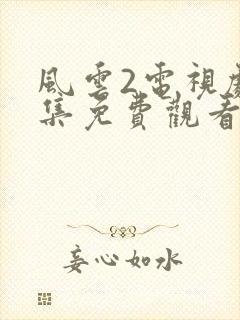 風雲2電視劇
集免費觀看
妾心如水